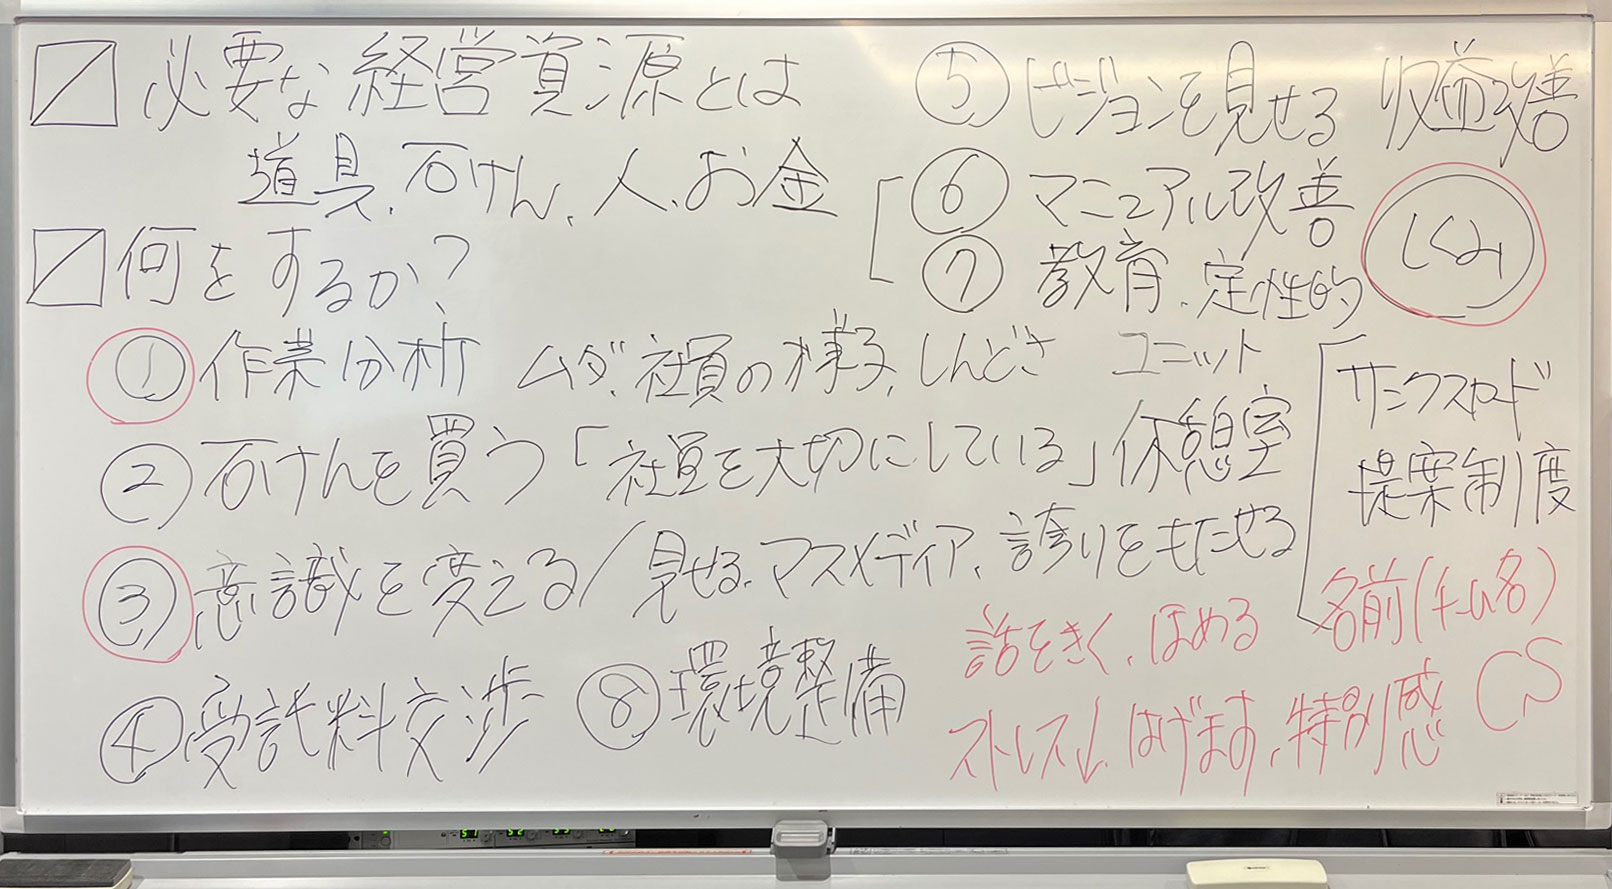 必要な経営資源とは
道具、石けん、人、お金
何をするか?
① 作業分析 ムダ、社員の様子、しんどさ ユニット
② 石けんを買う「社員を大切にしている」休憩室
③ 意識を変える/見せる、マスメディア、誇りをもたせる
④ 受託料交渉 ⑧ 環境整備
⑤ ビジョンを見せる 収益改善
⑥ マニュアル改善
⑦ 教育、定性的
しくみ
サンクスカード
提案制度
名前(チーム名)
話をきく、ほめる
ストレス↓、はげます、特別感
CS